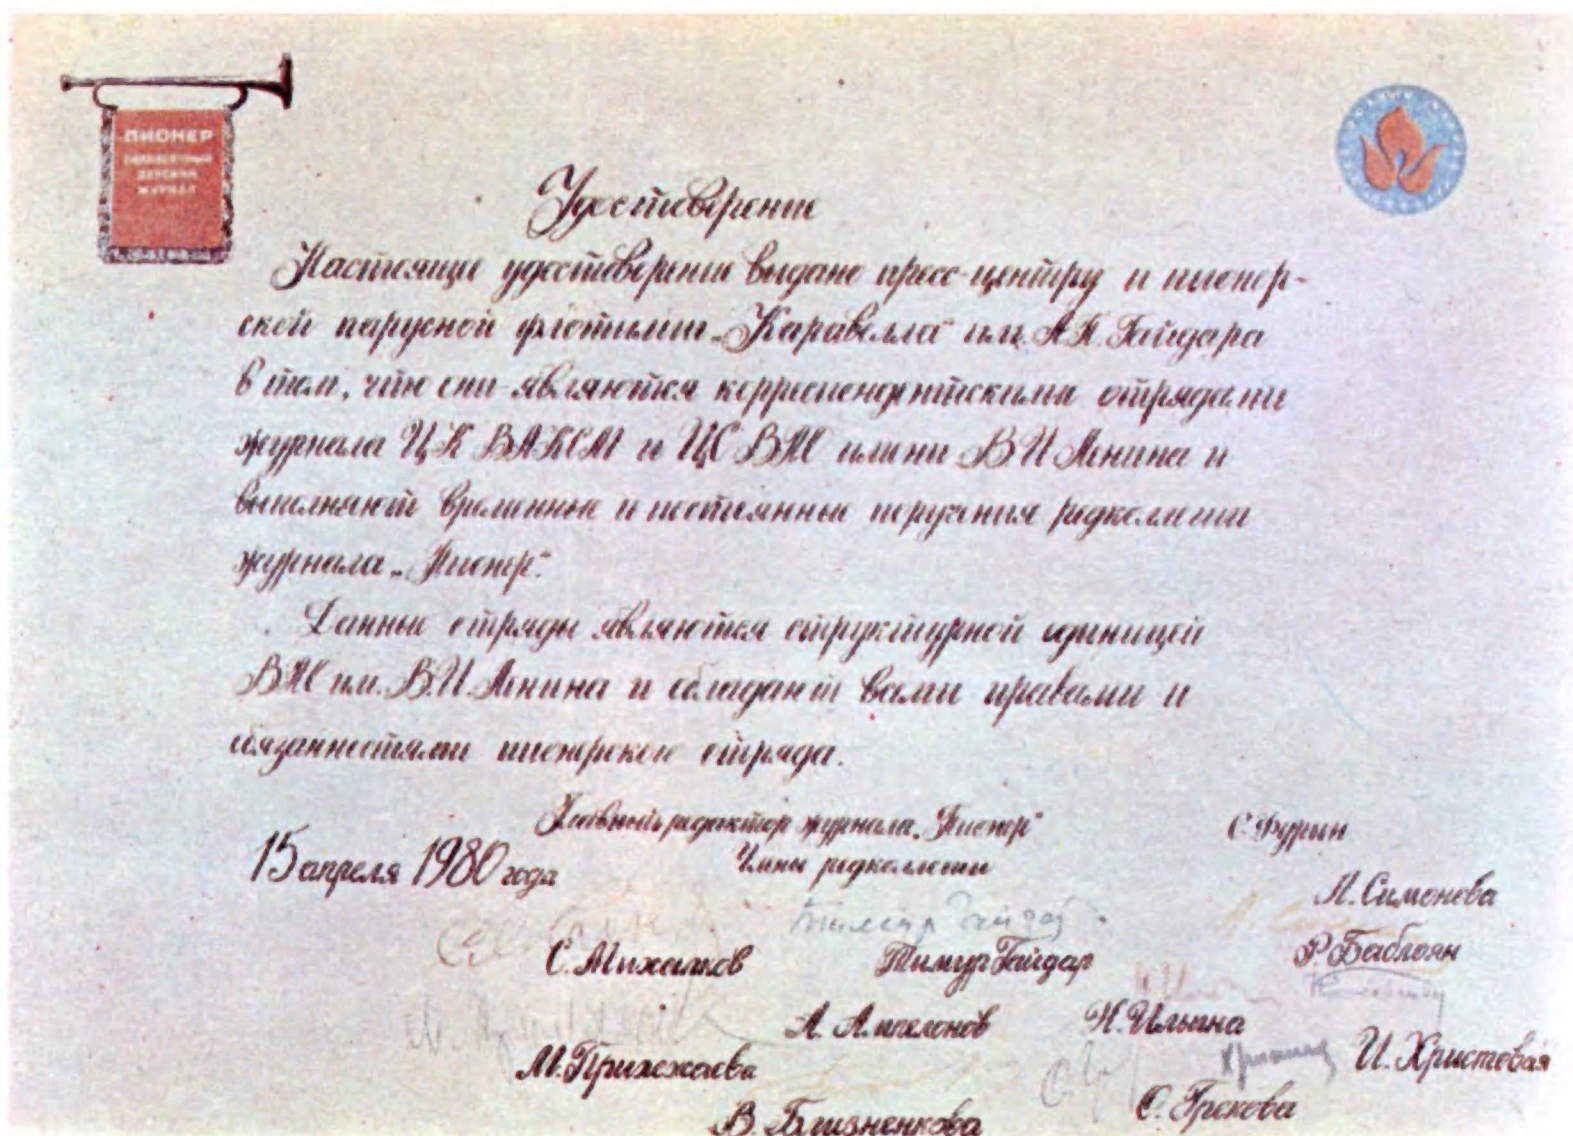 ПИОНЕР
ЕЖЕМЕСЯЧНЫЙ
ДЕТСКИЙ
ЖУРНАЛ
Удостоверение
Настоящее удостоверение выдано пресс-центру и пионер-
ской парусной флотилии „Каравелла“ им. А.П. Гайдара
в том, что они являются корреспондентскими отрядами
журнала ЦК ВЛКСМ и ЦС ВПО имени В.И Ленина и
выполняют временные и постоянные поручения редколлегии
журнала „Пионер“.
Данные отряды являются структурной единицей
ВПО им. В.И. Ленина и обладают всеми правами и
обязанностями пионерского отряда.
Главный редактор журнала „Пионер“ С. Фурин
15 апреля 1980 года
Члены редколлегии
Л. Симонова
Тимур Гайдар
С. Михалков Тимур Гайдар Р. Баблоян
Н. Ильина
М. Прилежаева И. Христовая
В. Близненкова С. Грекова